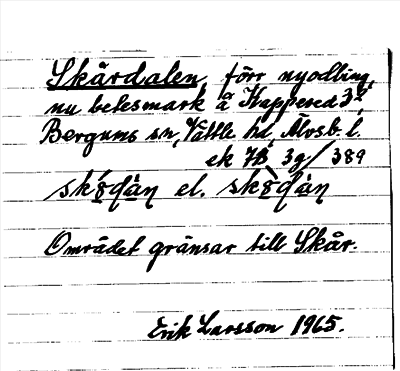 Skårdalen, förr nyodling,
nu betesmark å Kappered 3²,
Bergums sn, Vättle hd, Älvsb. l.
ek 7B 3g/389
el.
Området gränsar till Skår.
Erik Larsson 1965.